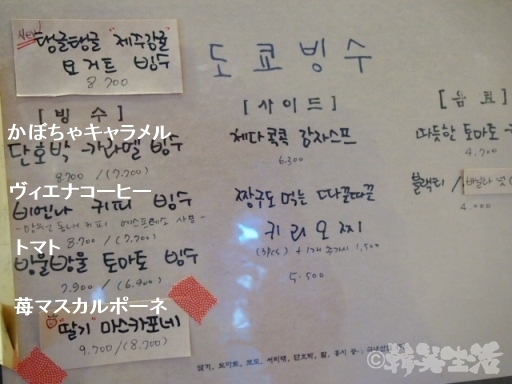 NEW!
탱글탱글 "제주감귤"
요거트 빙수
8.700
도쿄빙수
[ 빙수 ]
かぼちゃキャラメル
단호박 카라멜 빙수
8.700 / (7.700)
ヴィエナコーヒー
비엔나 커피 빙수
8.700 / (7.700)
トマト
방울방울 토마토 빙수
7.900 / (6.900)
苺マスカルポーネ
"딸기" 마스카포네
9.700 / (8.700)
[ 사이드 ]
체다콕콕 감자스프
6.300
짱구도 먹는 따끈따끈
키리모찌
(3pcs) + 1개 추가시 1,500
5.500
[ 음료 ]
따듯한 토마토
4.700
블랙티 /
4.000
韓笑生活